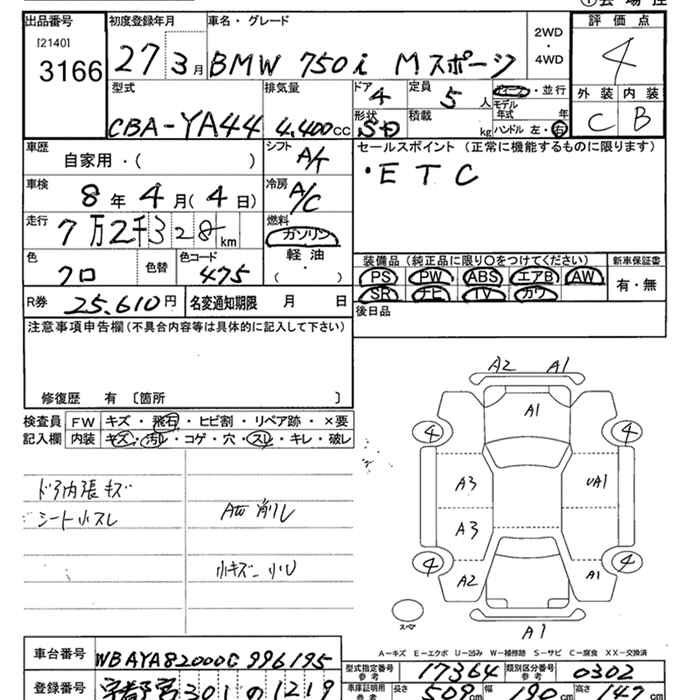 出品番号 初度登録年月 車名・グレード 評価点
[2140]
3166 27 3月 BMW 750i Mスポーツ 2WD・4WD 4
外装 内装
C B
型式 排気量 ドア 4 定員 5人 ・並行
CBA-YA44 4,400cc 形状 SD 積載 kg モデル年式 年
ハンドル 左・右
車歴 シフト セールスポイント(正常に機能するものに限ります)
自家用・( ) A/T ・ETC
車検 冷房
8年4月(4日) A/C
走行 燃料
7万2千328km ガソリン
色 色替 色コード 軽油
クロ 475 ( ・ )
装備品(純正品に限り○をつけてください) 新車保証書
PS PW ABS エアB AW 有・無
SR ナビ TV カワ
R券 25,610円 名変通知期限 月 日 後日品
注意事項申告欄(不具合内容等は具体的に記入して下さい)
修復歴 有〔箇所 〕
検査員 FW キズ・飛石・ヒビ割・リペア跡・×要
記入欄 内装 キズ・汚レ・コゲ・穴・スレ・キレ・破レ
ドア内張キズ
シート小スレ 削レ
小キズ 小U
A2 A1
A1
4 4
A3 UA1
A3
4 4
A2 A1
スペア
A1
A-キズ E-エクボ U-凹み W-補修跡 S-サビ C-腐食 XX-交換済
車台番号 WBAYA82000C996195
型式指定番号 参考 17364 類別区分番号 参考 0302
登録番号 宇都宮301の1219
車庫証明用 参考 長さ 509cm 幅 190cm 高さ 147cm